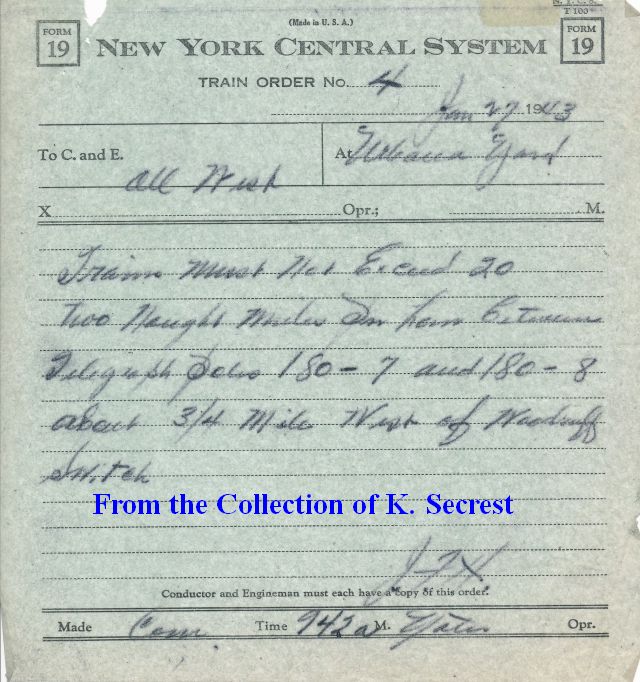 (Made in U. S. A.)
N. Y. C. S.
T 100
FORM 19
FORM 19
NEW YORK CENTRAL SYSTEM
TRAIN ORDER No. 4
Jan 27 1943
To C. and E.
At Urbana Yard
All West
X Opr.; M.
Trains Must Not Exceed 20
Two Naught Miles Per hour between
Telegraph Poles 180-7 and 180-8
about 3/4 Mile West of Woodruff
Switch
From the Collection of K. Secrest
JFH
Conductor and Engineman must each have a copy of this order.
Made Com Time 942a M. Yates Opr.